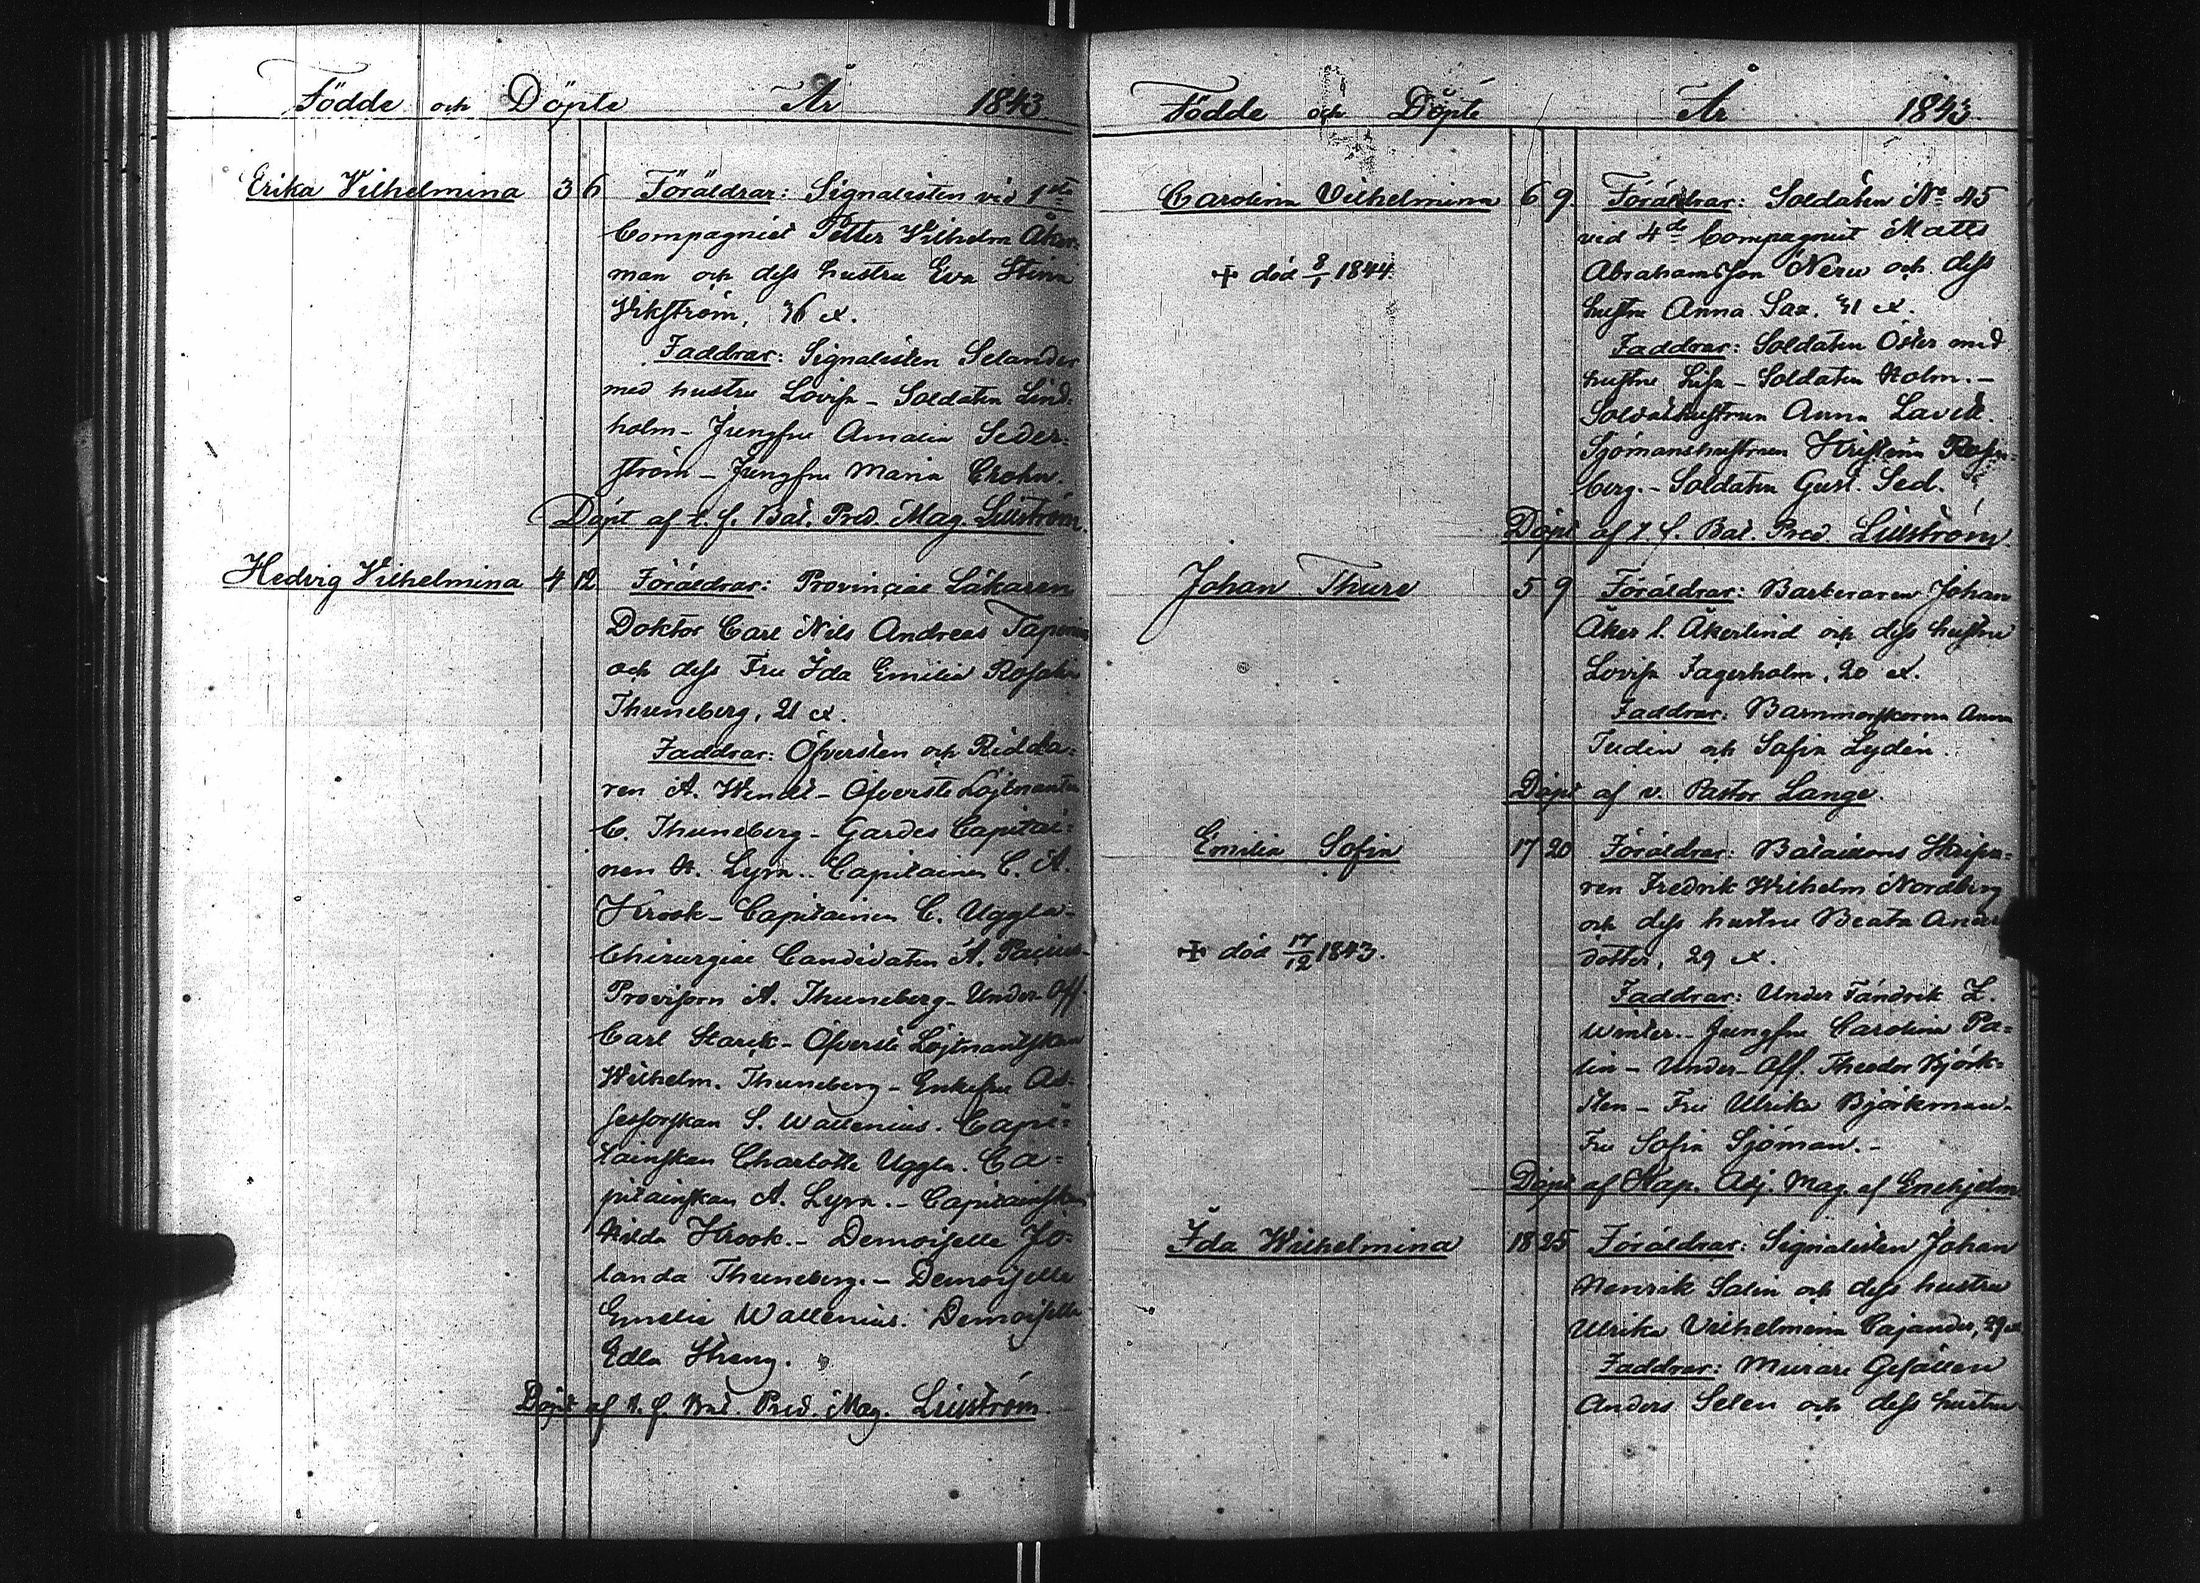 Födde och Döpte År 1843
Erika Vilhelmina 3 6 Föräldrar: Signalisten vid 1sta
Compagniet Petter Vilhelm Åker-
man och dess hustru Eva Stina
Vikström, 36 år.
Faddrar: Signalisten Selander
med hustru Lovisa - Soldaten Lind-
holm - Jungfru Amalia Seder-
ström - Jungfru Maria Crohn.
Döpt af t. f. Bat. Pred. Mag. Lilström.
Hedvig Vilhelmina 4 12 Föräldrar: Provincial Läkaren
Doktor Carl Nils Andreas
och dess Fru Ida Emilia Rosalia
Thuneberg, 21 år.
Faddrar: Öfversten och Ridda-
ren A. Wendt - Öfverste Löjtnanten
C. Thuneberg - Gardes Capitai-
nen H. Lyra - Capitainen C. A.
Krook - Capitainen C. Uggla -
Chirurgiae Candidaten A. Pacius -
Provisorn A. Thuneberg - Under Off.
Carl Starck - Öfverste Löjtnantskan
Wilhelm. Thuneberg - Enkefru As-
sessorskan S. Wallenius. Capi-
tainskan Charlotte Uggla. Ca-
pitainskan A. Lyra. - Capitainskan
Hilda Krook. - Demoiselle Jo-
landa Thuneberg. - Demoiselle
Emelie Wallenius. Demoiselle
Edla Streng.
Döpt af t. f. Bat. Pred. Mag. Lilström.
Födde och Döpte År 1843.
Carolina Vilhelmina 6 9. Föräldrar: Soldaten No 45
vid 4de Compagniet Matts
+ död 8/1 1844. Abrahamsson Neru och dess
hustru Anna Sax. 31 år.
Faddrar: Soldaten Öster med
hustru Lisa - Soldaten Holm. -
Soldathustrun Anna
Sjömanshustrun Kristina Rosen-
berg. - Soldaten Gust. Sed.
Döpt af t. f. Bat. Pred Lilström.
Johan Thure 5 9 Föräldrar: Barberaren Johan
Åker l. Åkerlind och dess hustru
Lovisa Fagerholm, 20 år.
Faddrar: Barnmorskorna Anna
Tudin och Sofia Lydén.
Döpt af v. Pastor Lange.
Emilia Sofia 17 20 Föräldrar: Bataillons Skrifva-
ren Fredrik Wilhelm Nordberg
och dess hustru Beata Anders
+ död 17/12 1843. dotter, 29 år.
Faddrar: Under Fändrik L.
Winter. - Jungfru Carolina Pa-
lin - Under-Off. Theodor Björk-
sten - Fru Ulrika Björkman -
Fru Sofia Sjöman. -
Döpt af Kap. Adj. Mag. af Enehjelm
Ida Wilhelmina 18 25 Föräldrar: Signalisten Johan
Henrik Salin och dess hustru
Ulrika Vilhelmina Cajander, 29 år
Faddrar: Murare Gesällen
Anders Selen och dess hustru